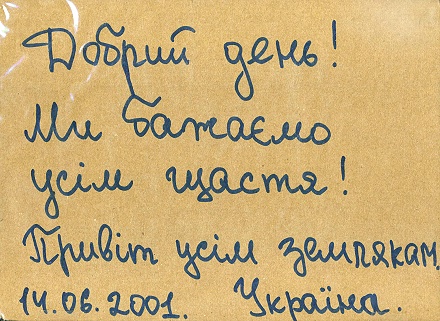 Добрий день!
Ми бажаємо
усім щастя!
Привіт усім землякам
14.06.2001. Україна.